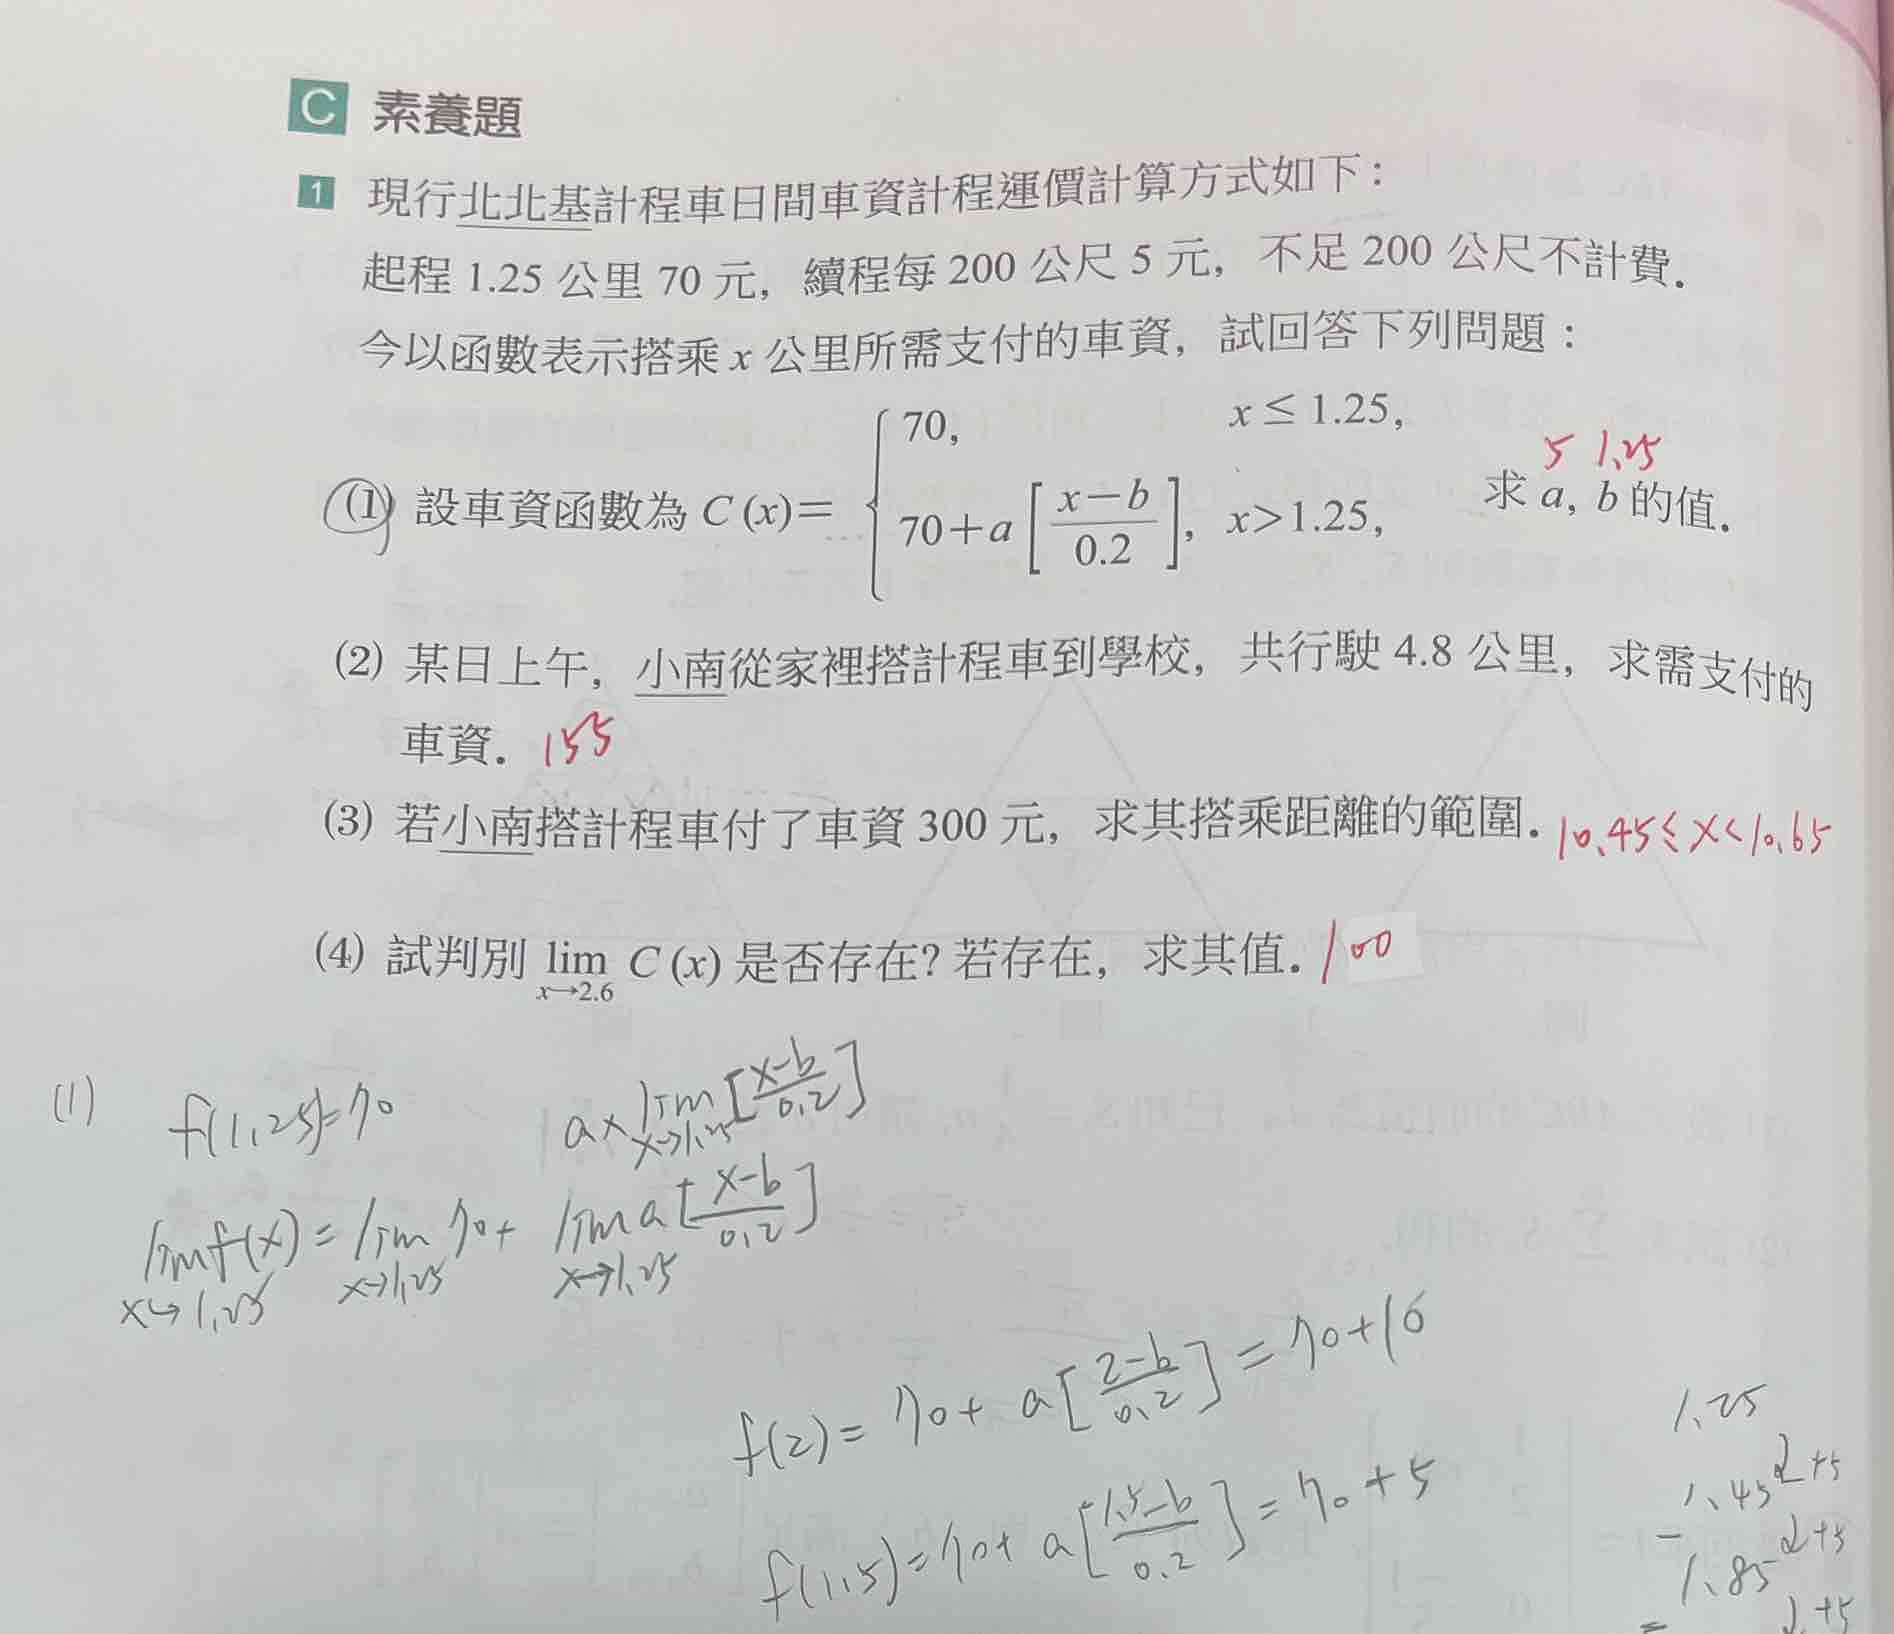 C 素養題
1 現行北北基計程車日間車資計程運價計算方式如下：
起程 1.25 公里 70 元，續程每 200 公尺 5 元，不足 200 公尺不計費．
今以函數表示搭乘 x 公里所需支付的車資，試回答下列問題：
70, x ≤ 1.25,
5 1.25
(1) 設車資函數為 C (x)= 求 a, b 的值．
70+a [x−b/0.2], x>1.25,
(2) 某日上午，小南從家裡搭計程車到學校，共行駛 4.8 公里，求需支付的
車資．155
(3) 若小南搭計程車付了車資 300 元，求其搭乘距離的範圍．10.45≤x<10.65
(4) 試判別 lim x→2.6 C (x) 是否存在? 若存在，求其值．100
(1) f(1.25)=70 a×lim x→1.25 [x-b/0.2]
lim x→1.25 f(x) = lim x→1.25 70+ lim x→1.25 a[x-b/0.2]
f(2)= 70+ a[2-b/0.2] = 70+
1.25
1.45 2+5
f(1.5)=70+ a[1.5-b/0.2] = 70+5
1.85 2+5
+5